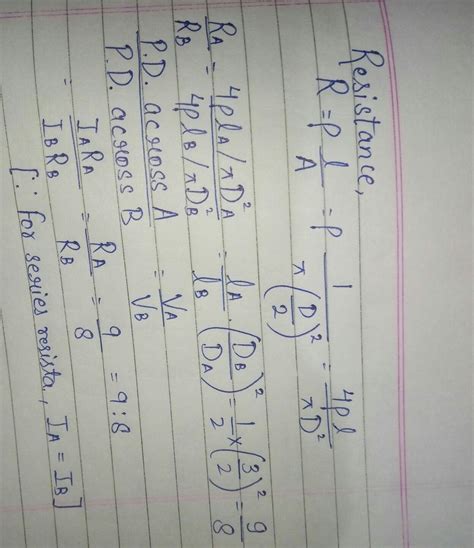 Resistance,
R = ρ l/A = ρ 1/(π(D/2)²) = 4ρl/πD²
R_A/R_B = (4ρl_A/πD²_A)/(4ρl_B/πD²_B) = l_A/l_B · (D_B/D_A)² = 1/2 × (3/2)² = 9/8
P.D. across A/P.D. across B = V_A/V_B
= I_A R_A/I_B R_B = R_A/R_B = 9/8 = 9:8
[∵ for series resista, I_A = I_B]